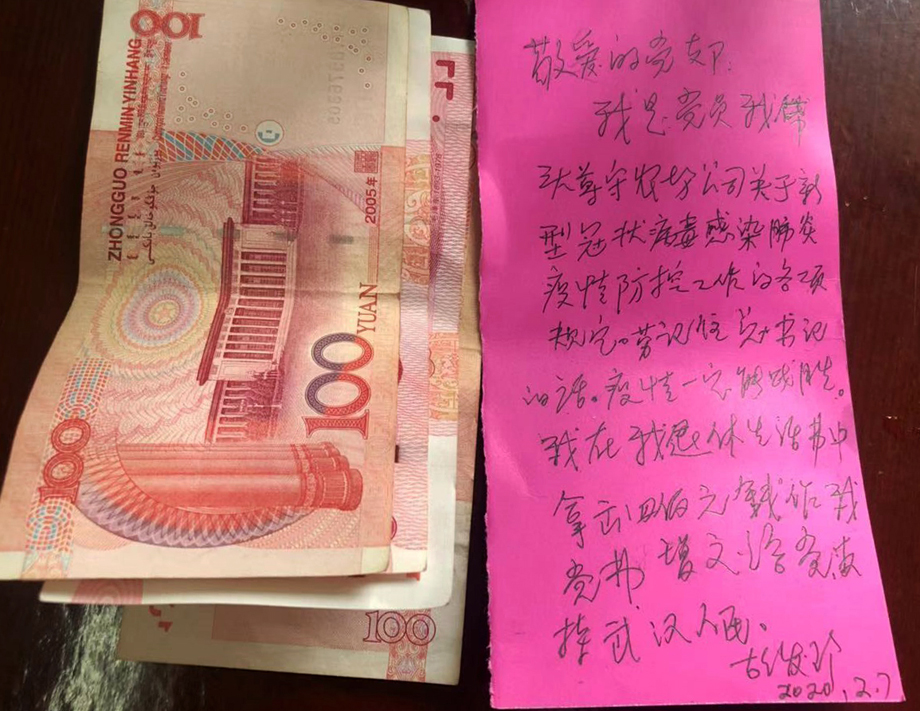 100
ZHONGGUO RENMIN YINHANG
2005年
100 YUAN
100
100
敬爱的党支部:
我是党员我
守农场公司关于新
型冠状病毒感染肺炎
疫情防控工作的各项
规定。牢记住总书记
的话。疫情一定能战胜。
我在我退休生活费中
拿出四佰元钱作我
党费 交给
武汉人民。
2020.2.7